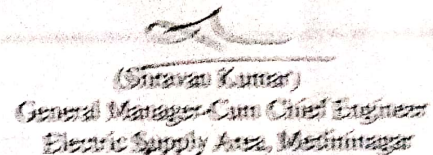 (Sravan Kumar)
General Manager-Cum Chief Engineer
Electric Supply Area, Medininagar